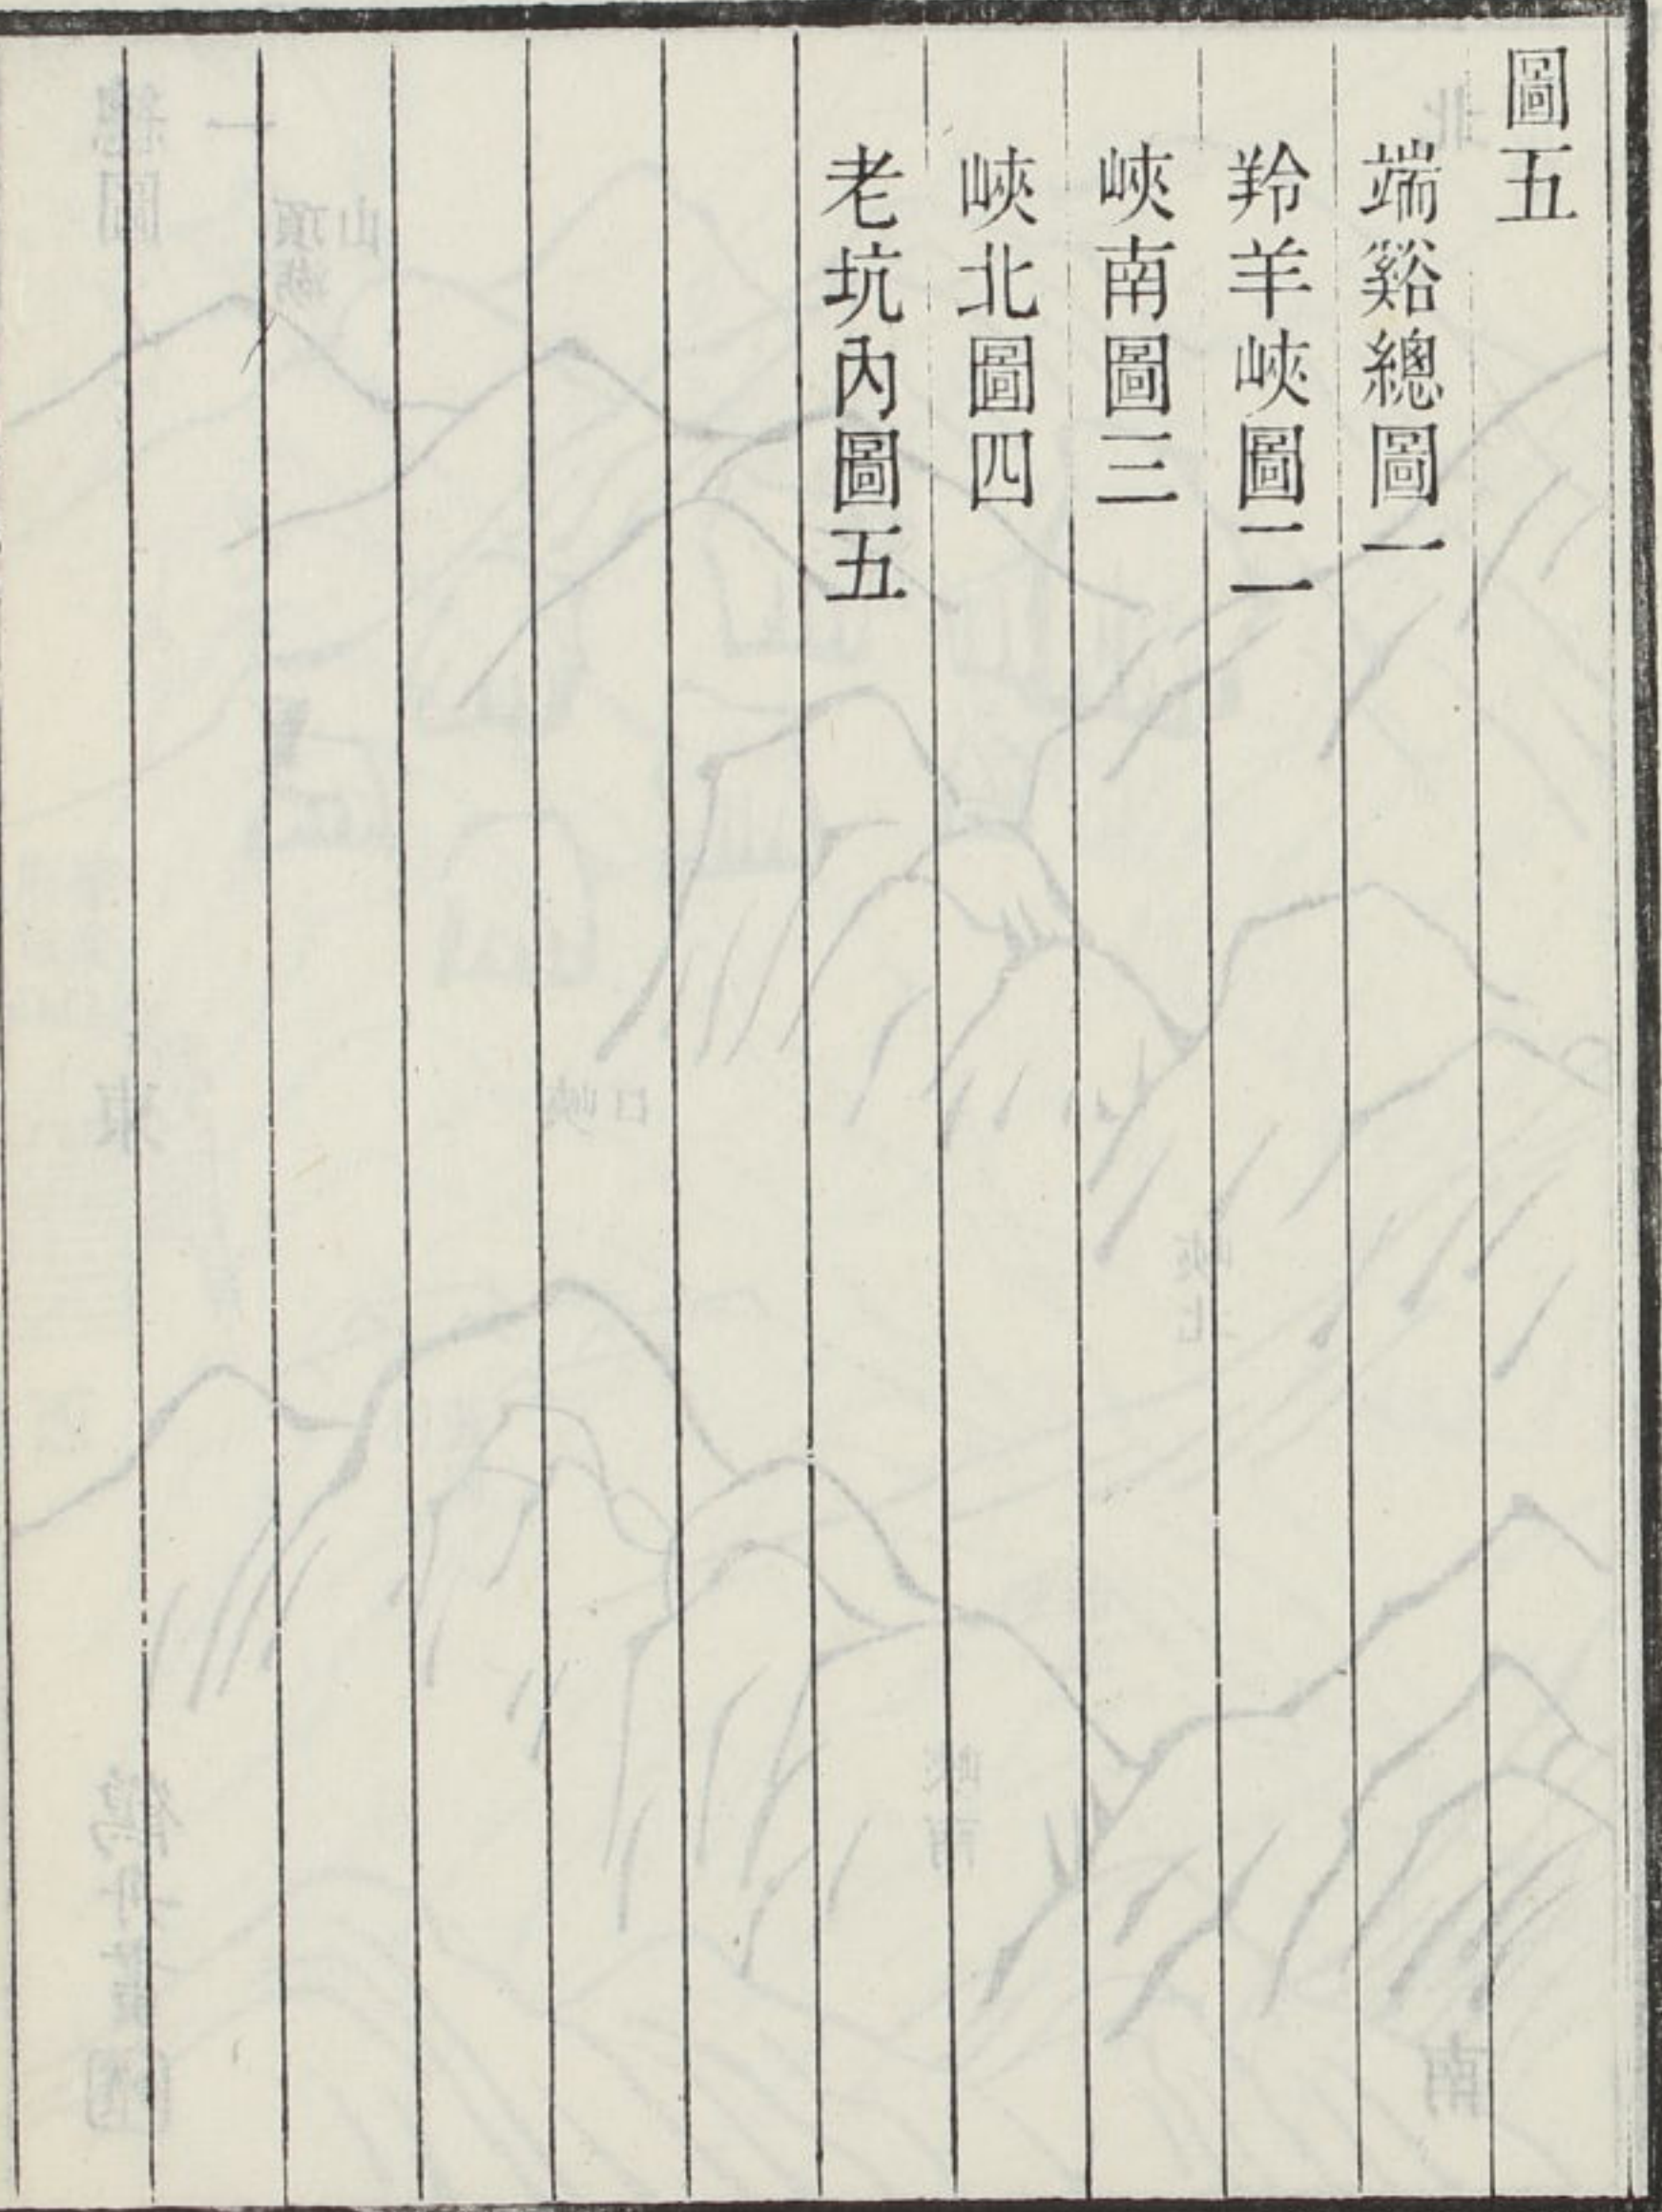 圖五
端谿總圖一
羚羊峽圖二
峽南圖三
峽北圖四
老坑內圖五